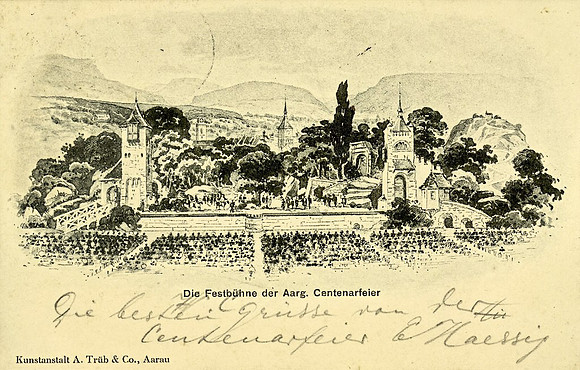 Die Festbühne der Aarg. Centenarfeier
Die besten Grüsse von der
Centenarfeier E Haessig
Kunstanstalt A. Trüb & Co., Aarau